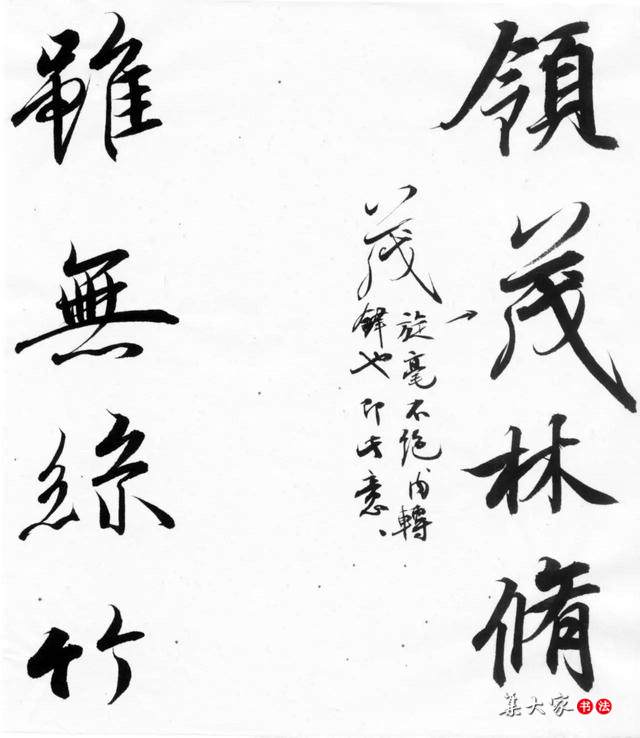 領茂林脩
茂
旋毫不絶内轉
鋒也即此意、
雖無絲竹
集大家书法